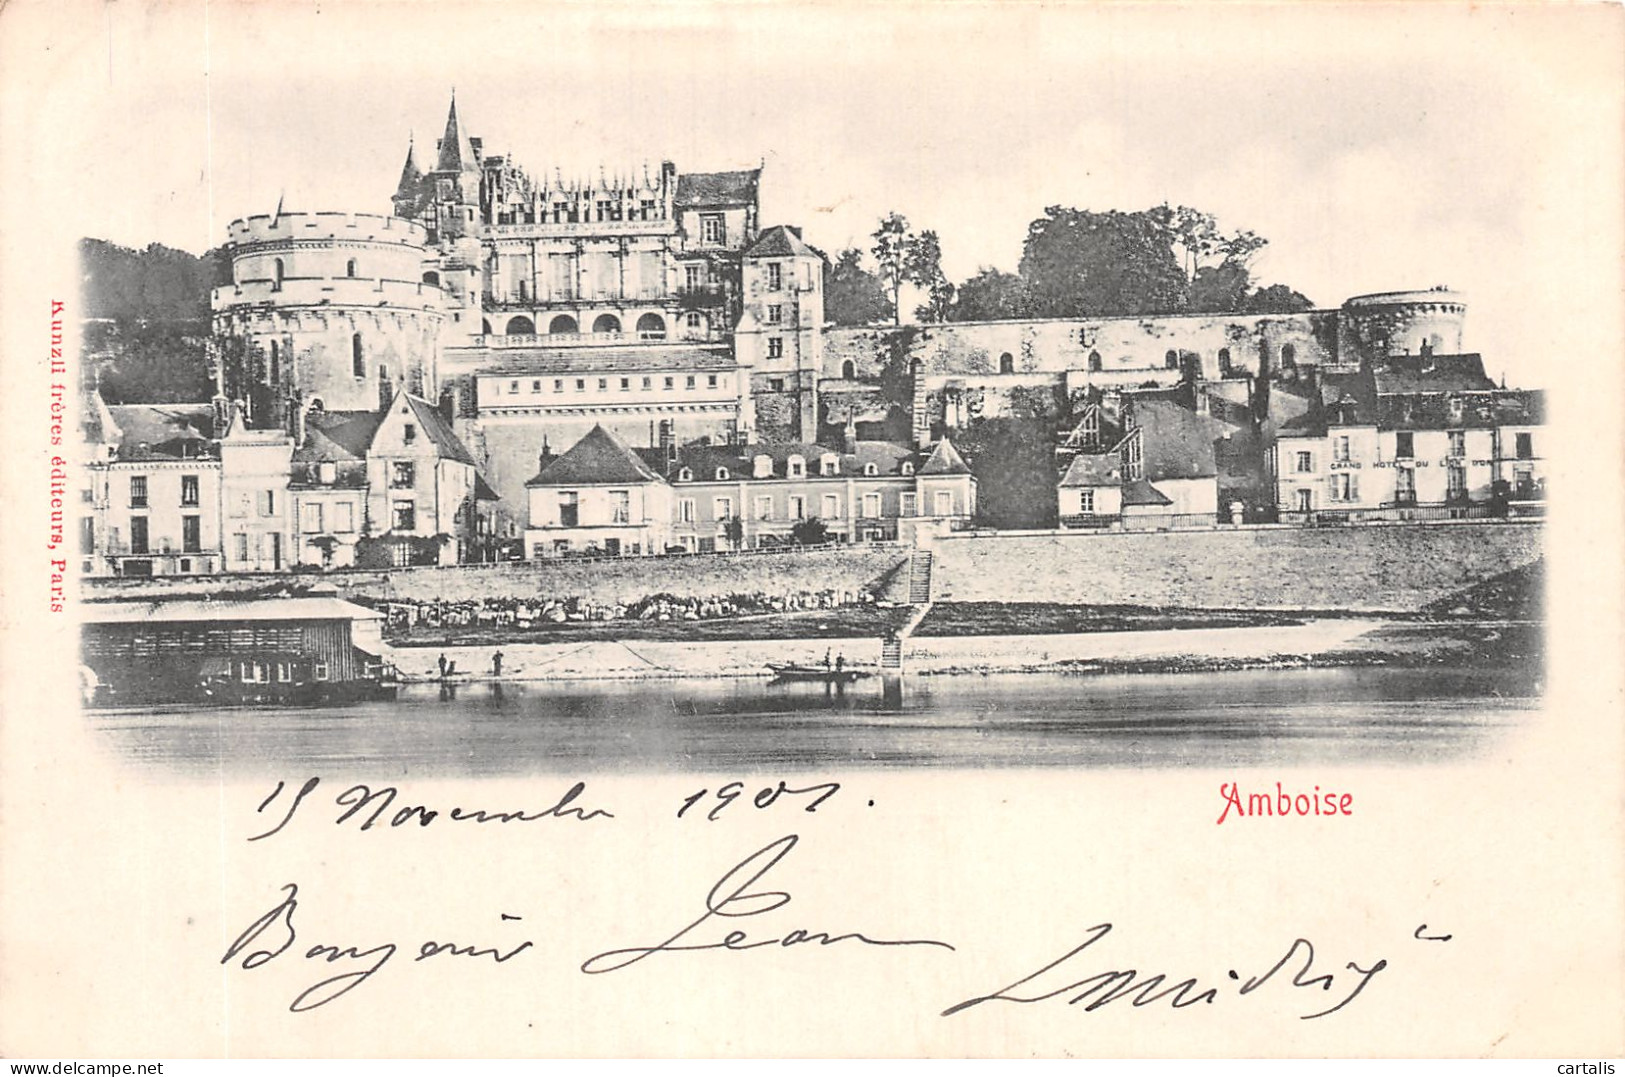 Kunzli frères éditeurs, Paris
GRAND HOTEL DU LION D'OR
Amboise
15 Novembre 1901.
Bonjour Jean
cartalis